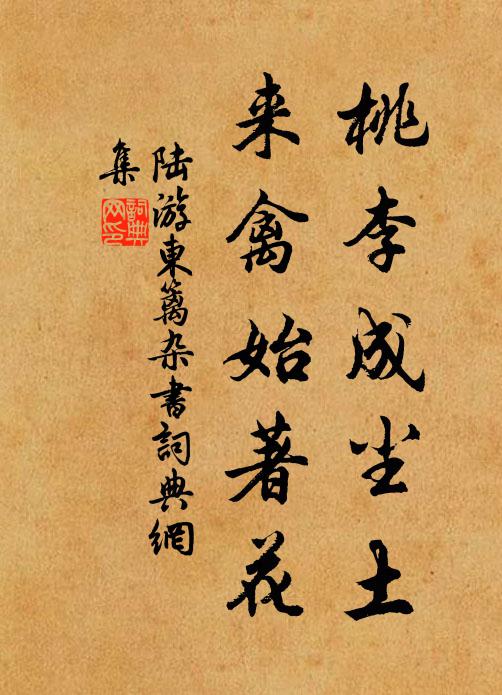 桃李成尘土
来禽始著花
陆游東篱杂書詞典網
集
詞典
网印